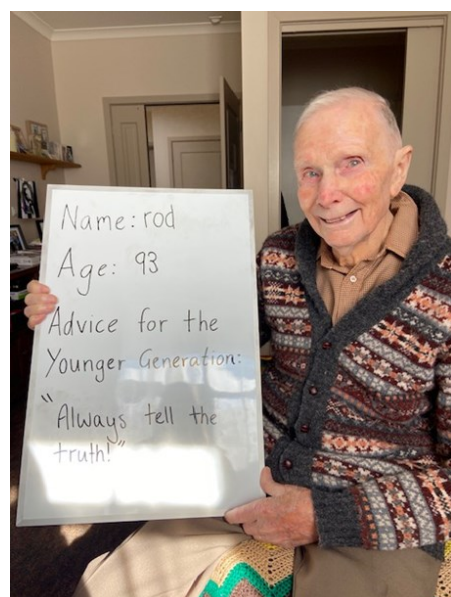 Name: rod
Age: 93
Advice for the
Younger Generation:
"Always tell the
truth!"